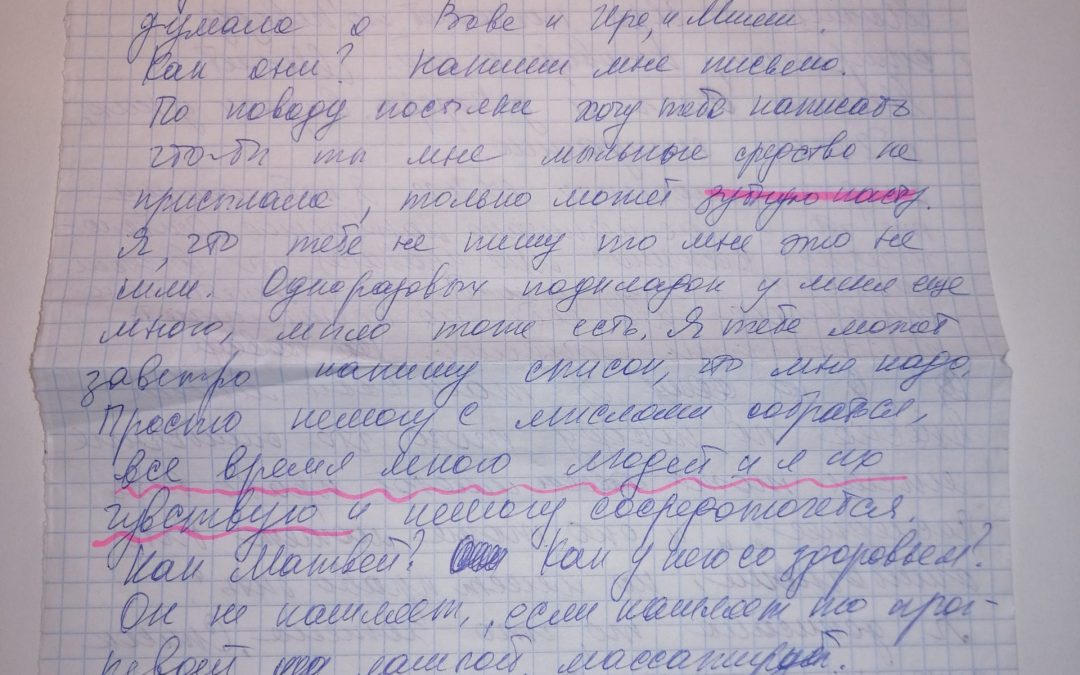 думала о Вове и Ире, и Миши.
Как они? Напиши мне письмо.
По поводу посылки хочу тебе написать
что-бы ты мне мыльные средство не
присылала, только может зубную пасту.
Я, что тебе не пишу то мне это не
шли. Одноразовых подкладок у меня еще
много, мыло тоже есть. Я тебе может
завтро напишу список, что мне надо.
Просто немогу с мыслями собраться,
все время много людей и я их
чувствую и немогу сосредоточеться.
Как Матвей? Как у него со здоровьем?
Он не кашляет, если кашляет то прог-
ревай лампой, массажируй.